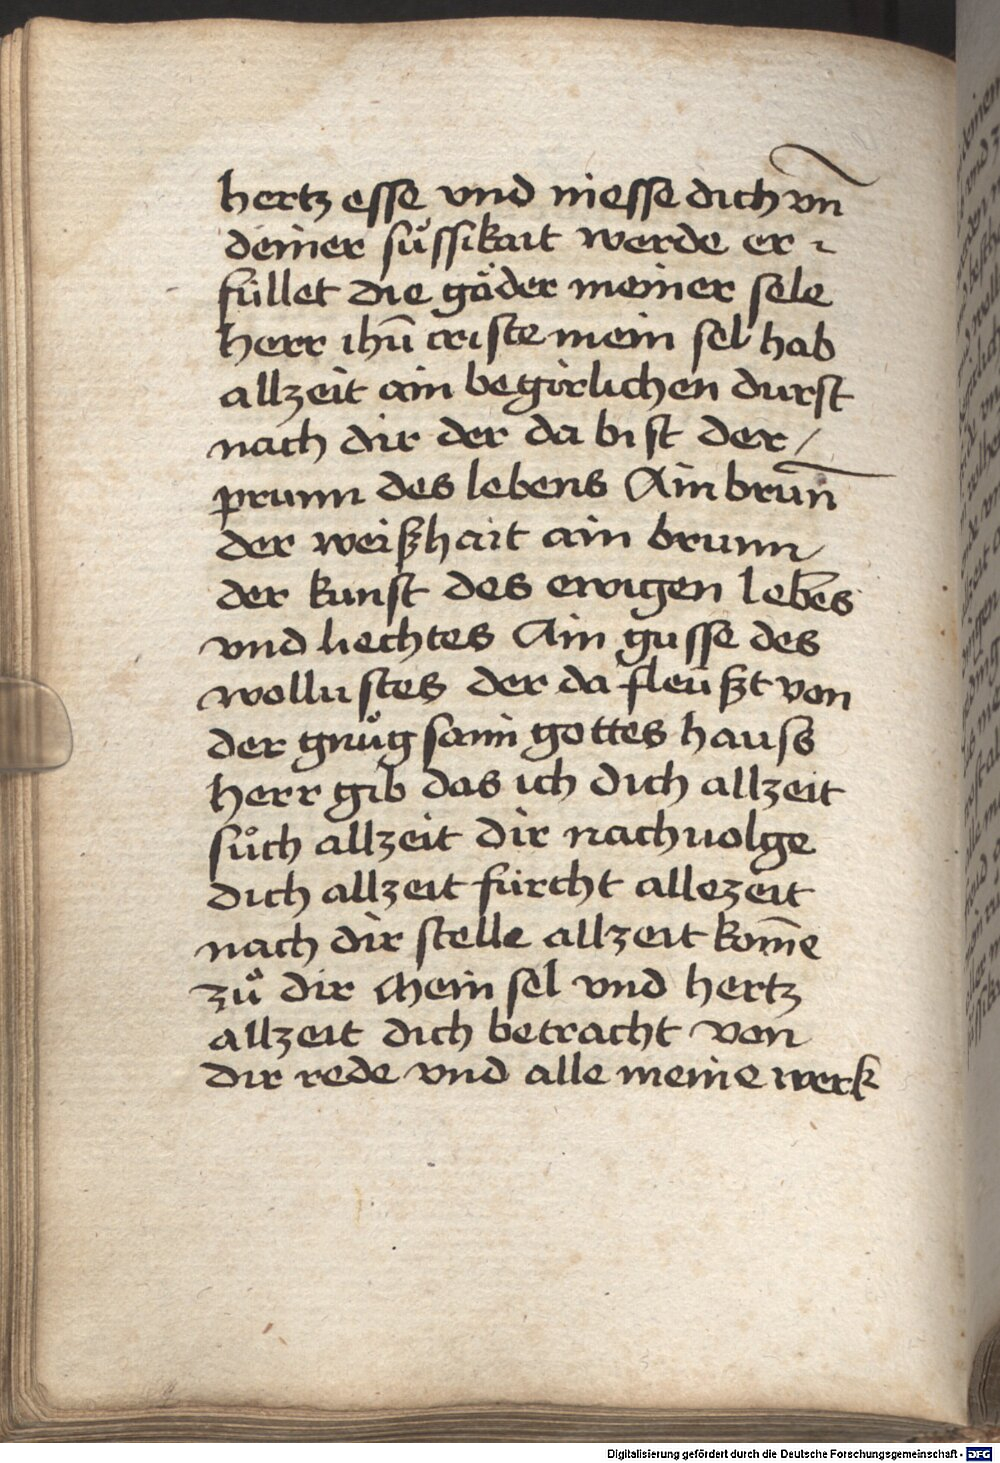 hertz esse vnd niesse dich vn̄
deiner sůssikait werde er
füllet die gäder meiner sele
herr ihū criste mein sel hab
allzeit ain begirlichen durst
nach dir der da bist der /
prunn des lebens Ain brun̄
der weißhait ain brunn
der kunst des ewigen lebēs
vnd liechtes Ain gusse des
wollustes der da fleüßt von
der gnůgsam gottes hauss
herr gib das ich dich allzeit
sůch allzeit dir nachuolge
dich allzeit fürcht allezeit
nach dir stelle allzeit kom̄e
zů dir Mein sel vnd hertz
allzeit dich betracht von
dir rede vnd alle meine werk
Digitalisierung gefördert durch die Deutsche Forschungsgemeinschaft - DFG